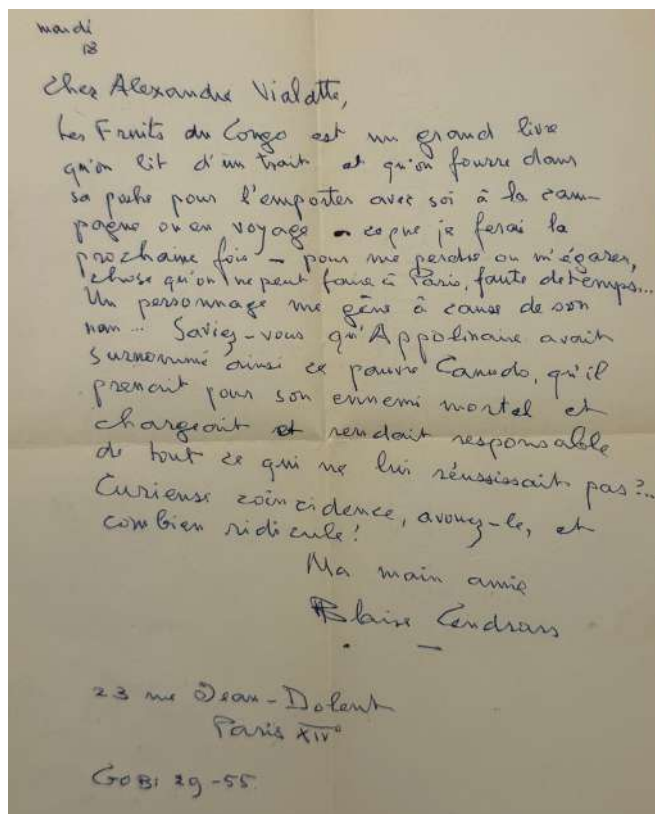 mardi
18
Cher Alexandre Vialatte,
Les Fruits du Congo est un grand livre
qu'on lit d'un trait et qu'on fourre dans
sa poche pour l'emporter avec soi à la cam-
pagne ou en voyage - ce que je ferai la
prochaine fois - pour me perdre ou m'égarer,
chose qu'on ne peut faire à Paris, faute de temps...
Un personnage me gêne à cause de son
nom... Saviez-vous qu'Appolinaire avait
surnommé ainsi ce pauvre Canudo, qu'il
prenait pour son ennemi mortel et
chargeait et rendait responsable
de tout ce qui ne lui réussissait pas?..
Curieuse coïncidence, avouez-le, et
combien ridicule!
Ma main amie
Blaise Cendrars
23 rue Jean-Dolent
Paris XIV°
GOBI 29-55